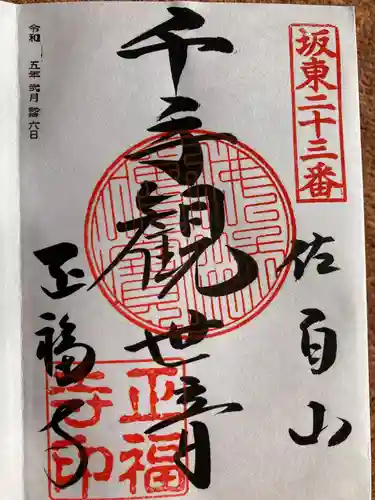 坂東二十三番
佐白山
千手観世音
正福寺
正福
寺印
令和 五年 弐月 廿六日